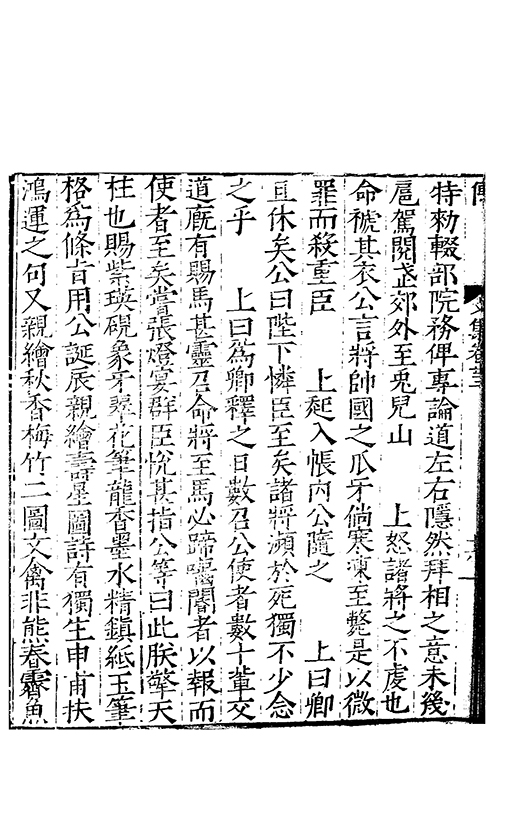 傳　文集卷
特勅輟部院務俾專論道左右隱然拜相之意未幾
扈駕閱武郊外至兎兒山　上怒諸將之不虔也
命褫其衣公言將帥國之爪牙倘寒凍至斃是以微
罪而殺重臣　上起入帳內公隨之　上曰卿
且休矣公曰陛下憐臣至矣諸將瀕於死獨不少念
之乎　上曰爲卿釋之日數召公使者數十輩交
道廐有賜馬甚靈召命將至馬必蹄囓閽者以報而
使者至矣嘗張燈宴群臣悅甚指公等曰此朕擎天
柱也賜紫瑛硯象牙翠花筆龍香墨水精鎮紙玉筆
格爲條旨用公誕辰親繪壽星圖詩有獨生申甫扶
鴻運之何又親繪秋香梅竹二圖文禽非熊春霽魚